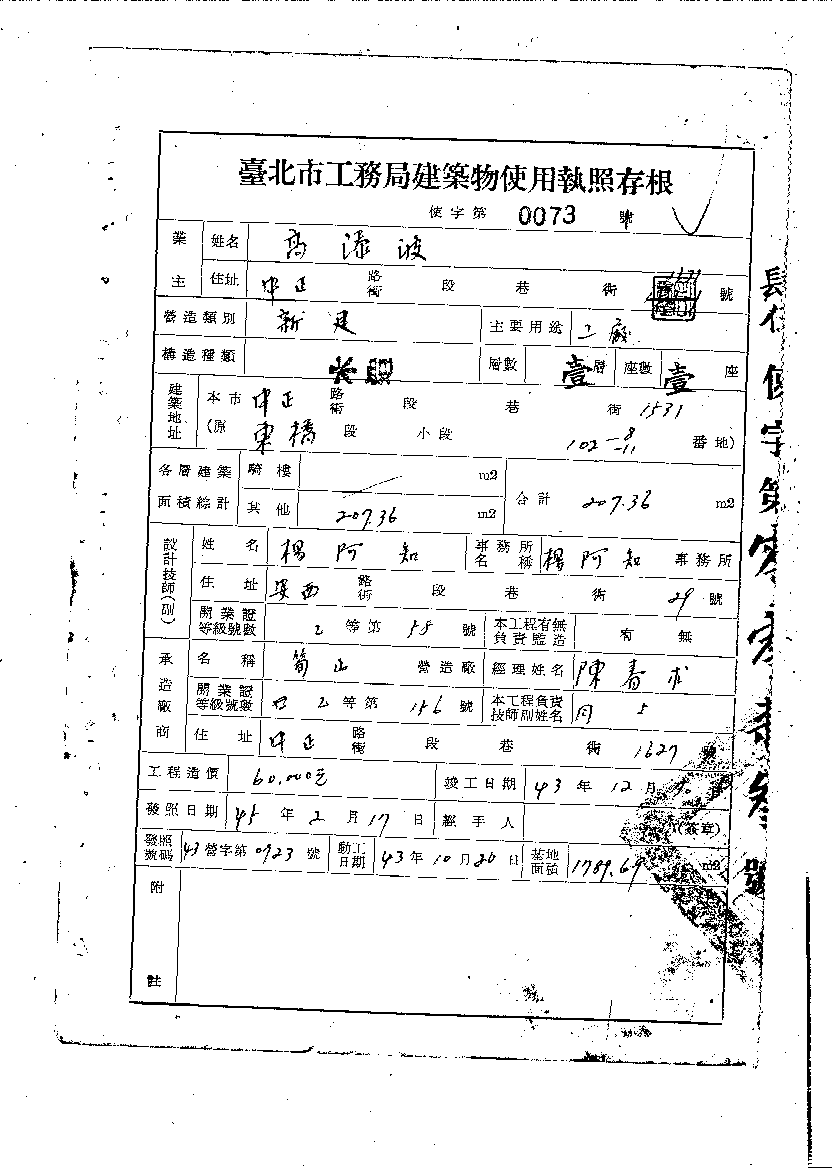 臺北市工務局建築物使用執照存根
使字第 0073 號
業主 姓名 高添波
住址 中正 路街 段 巷 街 號
營造類別 新建 主要用途 工廠
構造種類 層數 壹 層 座數 壹 座
建築地址 本市 中正 路街 段 巷 街 1531
(原 東橋 段 小段 102-8 -11 番地)
各層建築面積綜計 騎樓 m2 合計 207.36 m2
其他 207.36 m2
設計技師(副) 姓名 楊阿知 事務所名稱 楊阿知 事務所
住址 安西 路街 段 巷 街 29 號
開業證等級號數 乙 等第 58 號 本工程有無負責監造 有 無
承造廠商 名稱 山 營造廠 經理姓名 陳春求
開業證等級號數 乙 等第 156 號 本工程負責技師副姓名 同
住址 中正 路街 段 巷 街 1627 號
工程造價 60,000元 竣工日期 43 年 12 月 日
發照日期 45 年 2 月 17 日 經手人 (簽章)
發照號碼 43 營字第 0723 號 動工日期 43 年 10 月 20 日 基地面積 1789.69 m2
附註
使字第零零柒參號